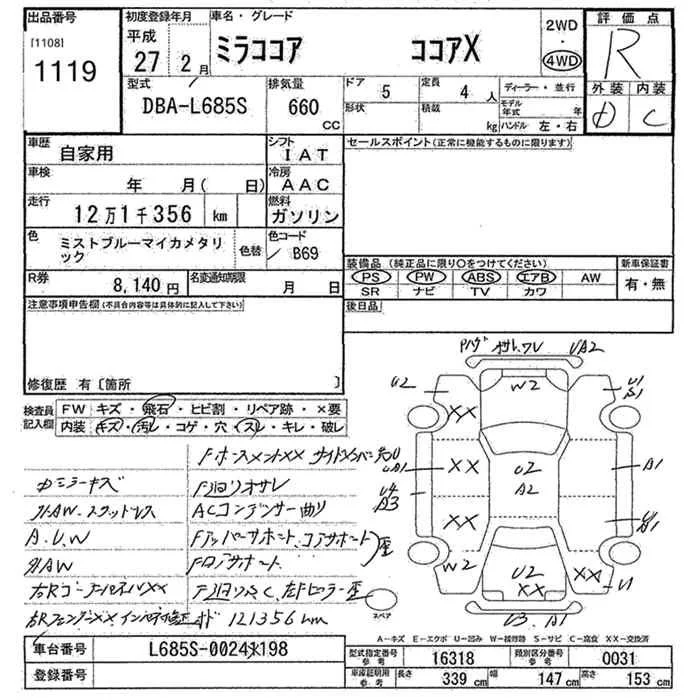 出品番号 初度登録年月 車名・グレード 評価点
[1108] 平成 2WD
1119 27 2月 ミラココア ココアX ・ R
4WD
型式 排気量 ドア 5 定員 4人 ディーラー・並行 外装 内装
DBA-L685S 660 CC 形状 積載 kg モデル年式 年 D C
ハンドル 左・右
車歴 自家用 シフト IAT セールスポイント(正常に機能するものに限ります)
車検 年 月( 日) 冷房 AAC
走行 12万1千356 km 燃料 ガソリン
色 ミストブルーマイカメタリック 色替 色コード B69
装備品(純正品に限り○をつけてください) 新車保証書
R券 8,140円 名変通知期限 月 日 PS PW ABS エアB AW 有・無
SR ナビ TV カワ
注意事項申告欄(不具合内容等は具体的に記入して下さい) 後日品
修復歴 有〔箇所 〕
検査員記入欄 FW キズ・飛石・ヒビ割・リペア跡・×要
内装 キズ・汚レ・コゲ・穴・スレ・キレ・破レ
Fホースメント×× サイドメンバー
Dミラーキズ F廻りオサレ
ACコンデンサー曲り
A.U.W Fアッパーサポート、コアサポート
H/AW Fロアサポート
121356 km
オサレ UA2
U2 W2 U1
XX S1
XX U2 A1
UA1 A2
U4
A3 XX
W2 U2 XX U1
XX
スペア U3 A1
A-キズ E-エクボ U-凹み W-補修跡 S-サビ C-腐食 XX-交換済
車台番号 L685S-0024198 型式指定番号 参考 16318 類別区分番号 参考 0031
登録番号 車庫証明用 参考 長さ 339 cm 幅 147 cm 高さ 153 cm